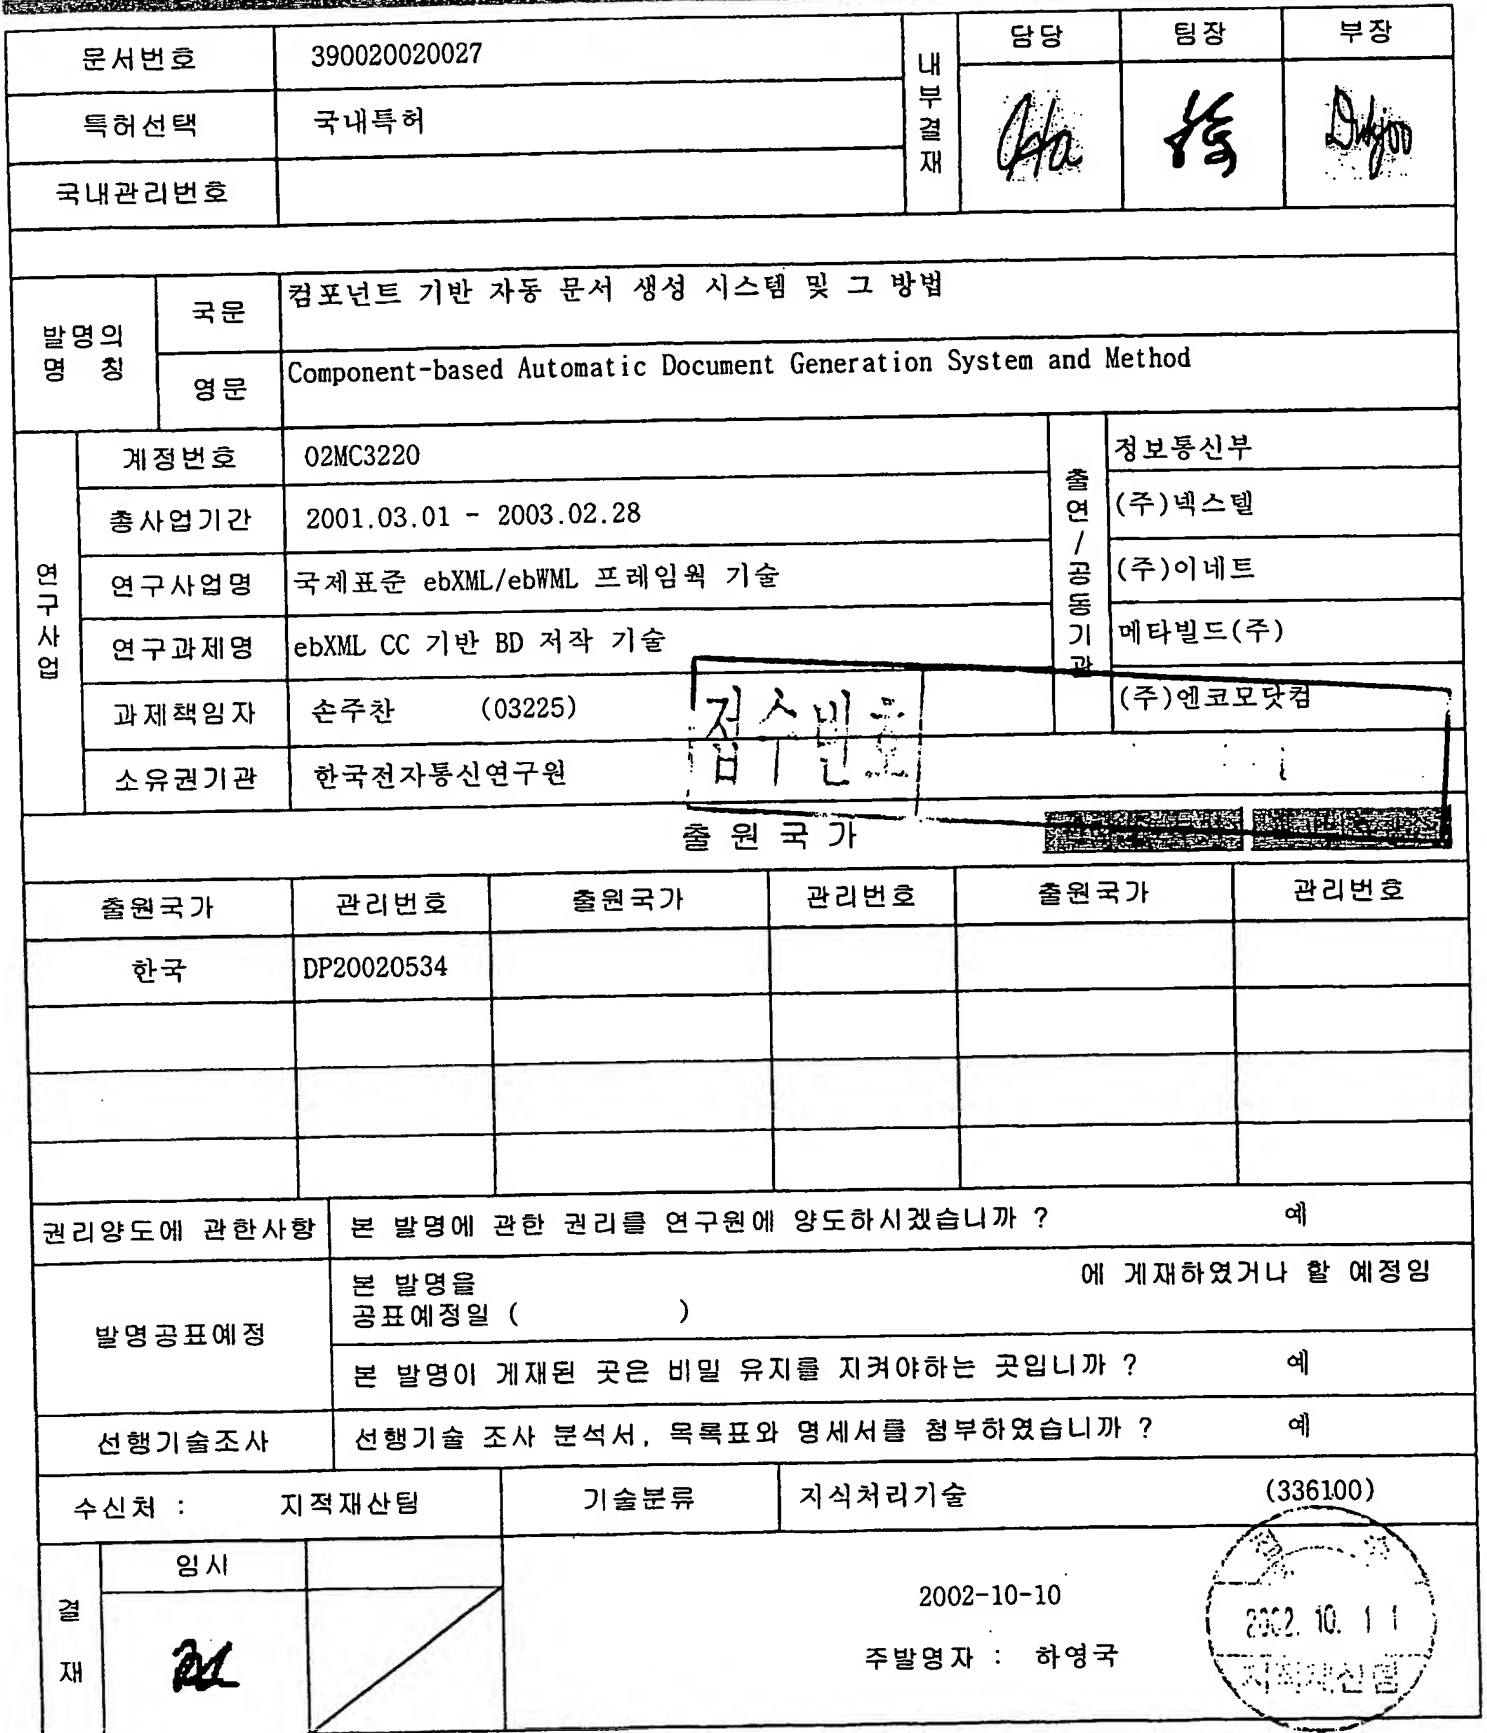 문서번호 390020020027
내부결재 담당 팀장 부장
특허선택 국내특허
국내관리번호
발명의 명 칭
국문 컴포넌트 기반 자동 문서 생성 시스템 및 그 방법
영문 Component-based Automatic Document Generation System and Method
연구사업
계정번호 02MC3220
총사업기간 2001.03.01 - 2003.02.28
연구사업명 국제표준 ebXML/ebWML 프레임웍 기술
연구과제명 ebXML CC 기반 BD 저작 기술
과제책임자 손주찬 (03225)
소유권기관 한국전자통신연구원
출연/공동기관
정보통신부
(주)넥스텔
(주)이네트
메타빌드(주)
(주)엔코모닷컴
접수번호
출원국가
출원국가 관리번호 출원국가 관리번호 출원국가 관리번호
한국 DP20020534
권리양도에 관한사항 본 발명에 관한 권리를 연구원에 양도하시겠습니까 ? 예
발명공표예정
본 발명을 에 게재하였거나 할 예정임
공표예정일 ( )
본 발명이 게재된 곳은 비밀 유지를 지켜야하는 곳입니까 ? 예
선행기술조사 선행기술 조사 분석서, 목록표와 명세서를 첨부하였습니까 ? 예
수신처 : 지적재산팀 기술분류 지식처리기술 (336100)
결재 임시
2002-10-10
주발명자 : 하영국
접수
2002. 10. 11
지적재산팀